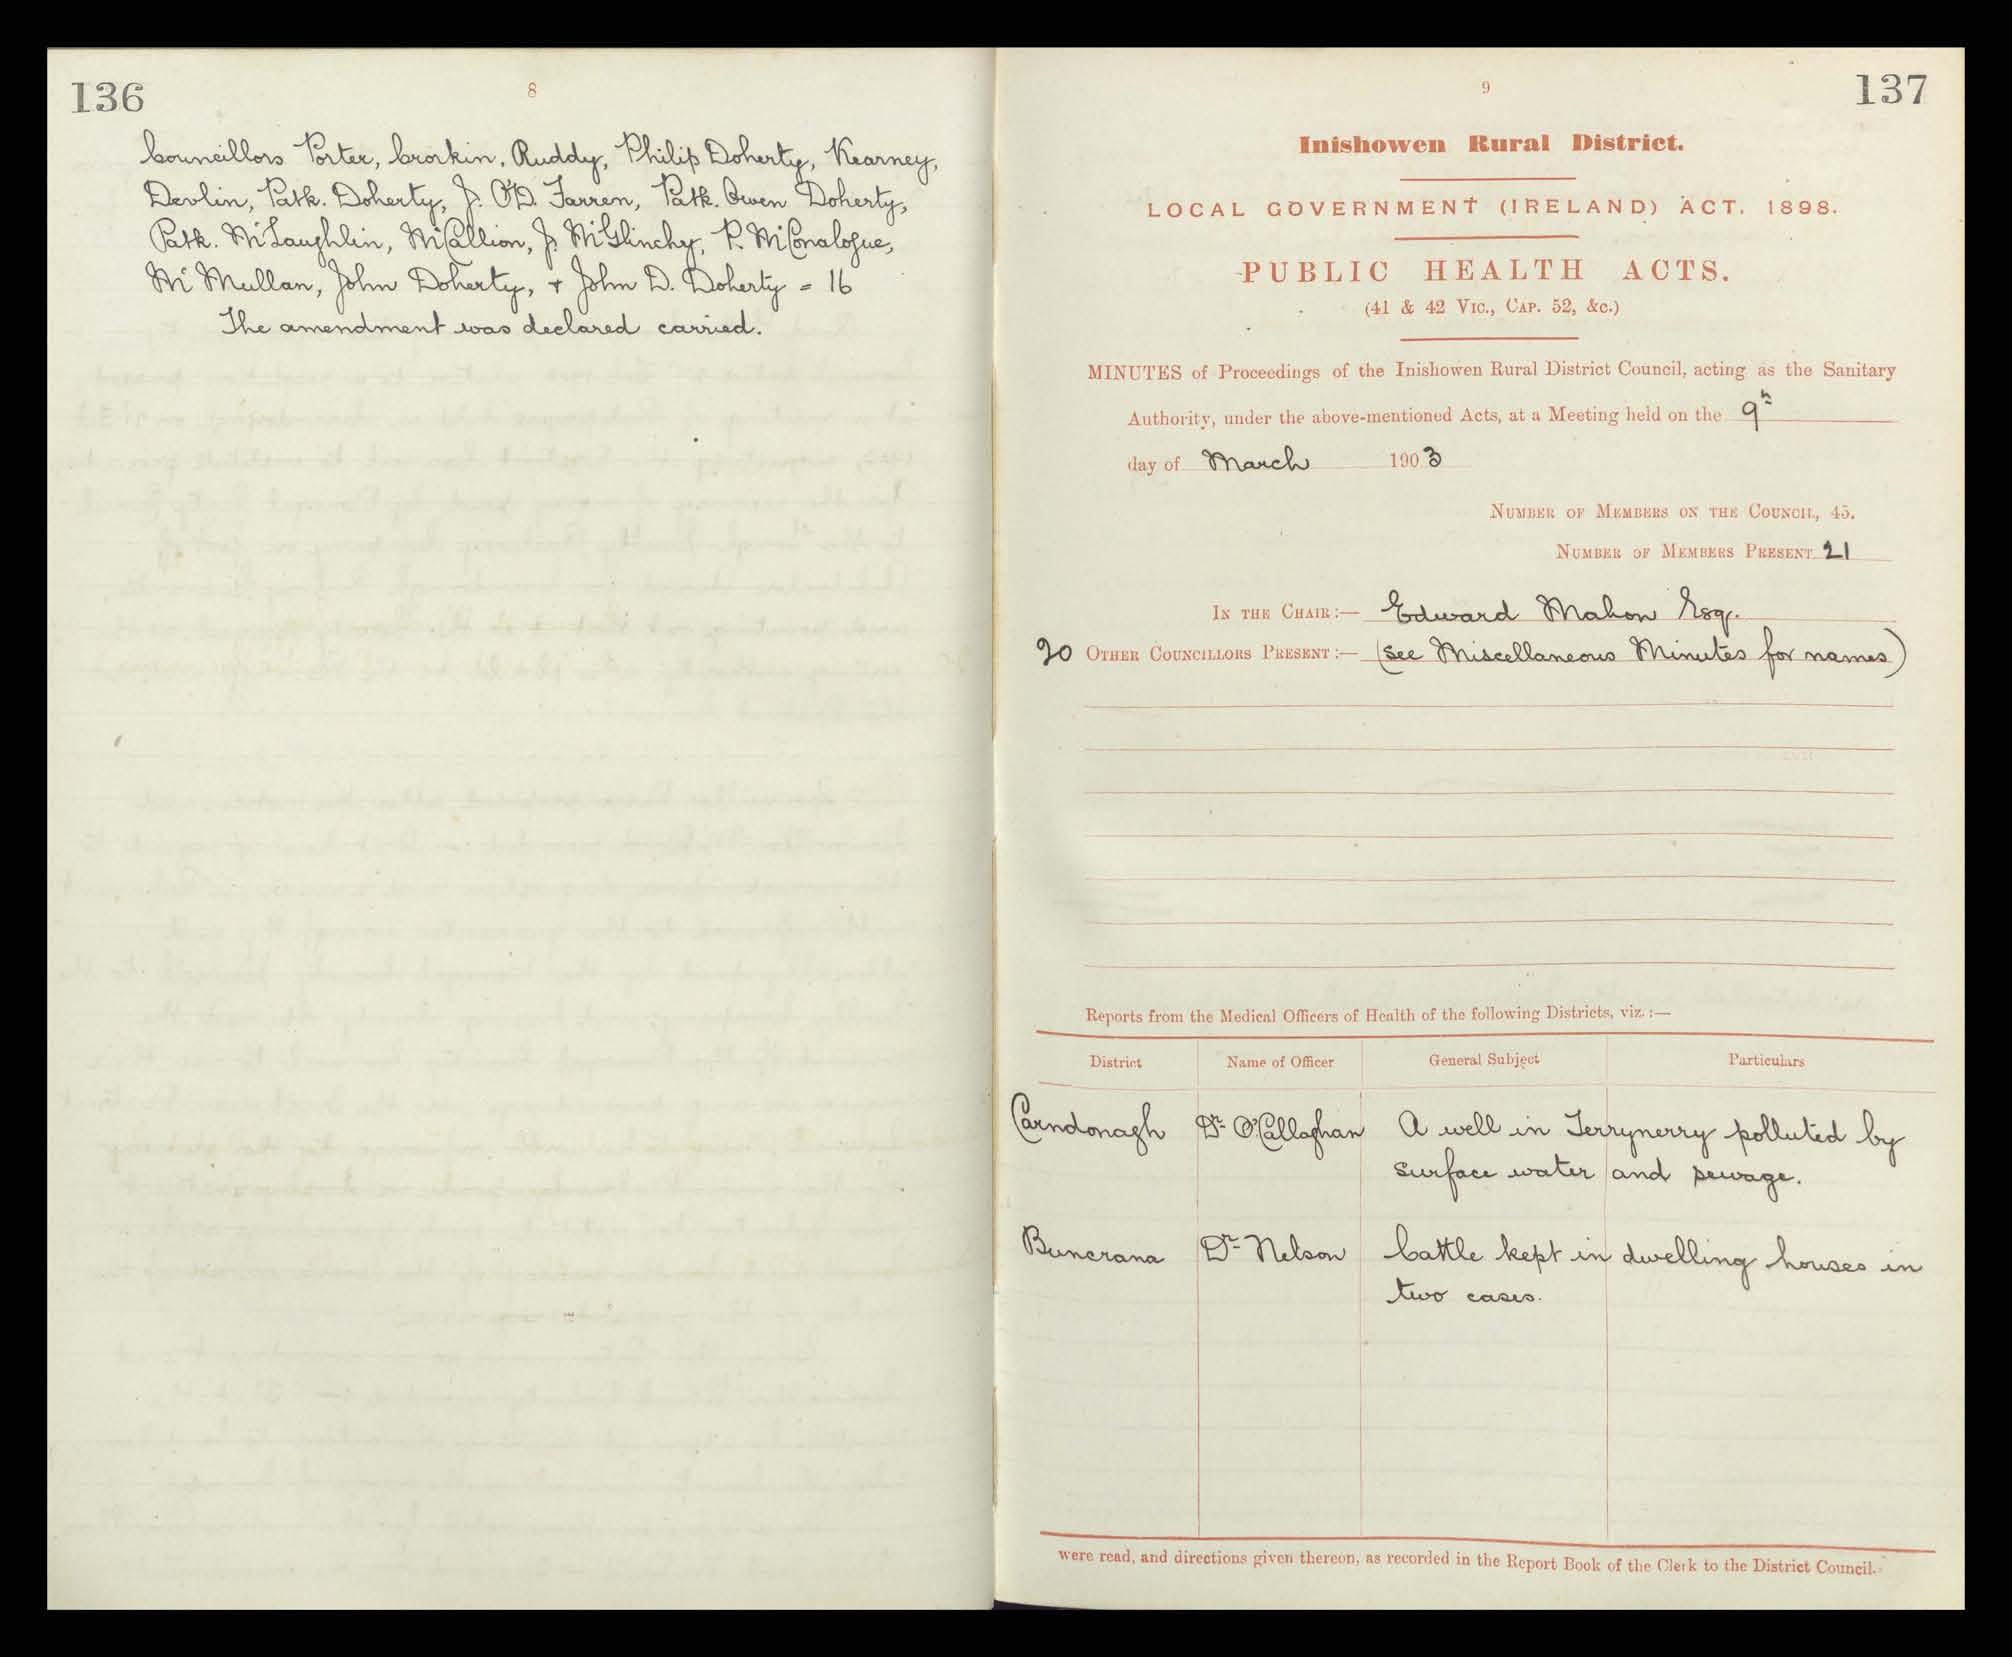 136
8
Councillors Porter, Crorkin, Ruddy, Philip Doherty, Kearney,
Devlin, Patk. Doherty, J. O'D. Farren, Patk. Owen Doherty,
Patk. McLaughlin, McCallion, J. McGlinchy, P. McConalogue,
Mc Mullan, John Doherty, + John D. Doherty = 16
The amendment was declared carried.
9
137
Inishowen Rural District.
LOCAL GOVERNMENT (IRELAND) ACT. 1898.
PUBLIC HEALTH ACTS.
(41 & 42 VIC., CAP. 52, &c.)
MINUTES of Proceedings of the Inishowen Rural District Council, acting as the Sanitary
Authority, under the above-mentioned Acts, at a Meeting held on the 9th
day of March 1903
NUMBER OF MEMBERS ON THE COUNCIL, 45.
NUMBER OF MEMBERS PRESENT 21
IN THE CHAIR:— Edward Mahon Esq.
20 OTHER COUNCILLORS PRESENT:— (see Miscellaneous Minutes for names)
Reports from the Medical Officers of Health of the following Districts, viz.:—
District Name of Officer General Subject Particulars
Carndonagh Dr O'Callaghan A well in Terrynerry polluted by
surface water and sewage.
Buncrana Dr Nelson Cattle kept in dwelling houses in
two cases.
were read, and directions given thereon, as recorded in the Report Book of the Clerk to the District Council.